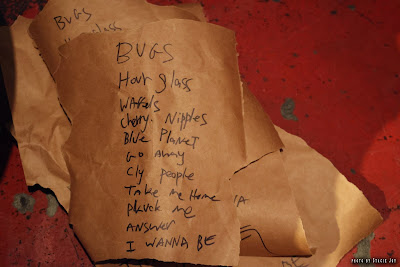 BUGS
glass
BUGS
Hour glass
Waffels
Cherry Nipples
Blue Planet
Go away
Cly people
Take me Home
Pluck me
Answer
I WANNA BE
NE
PHOTO BY